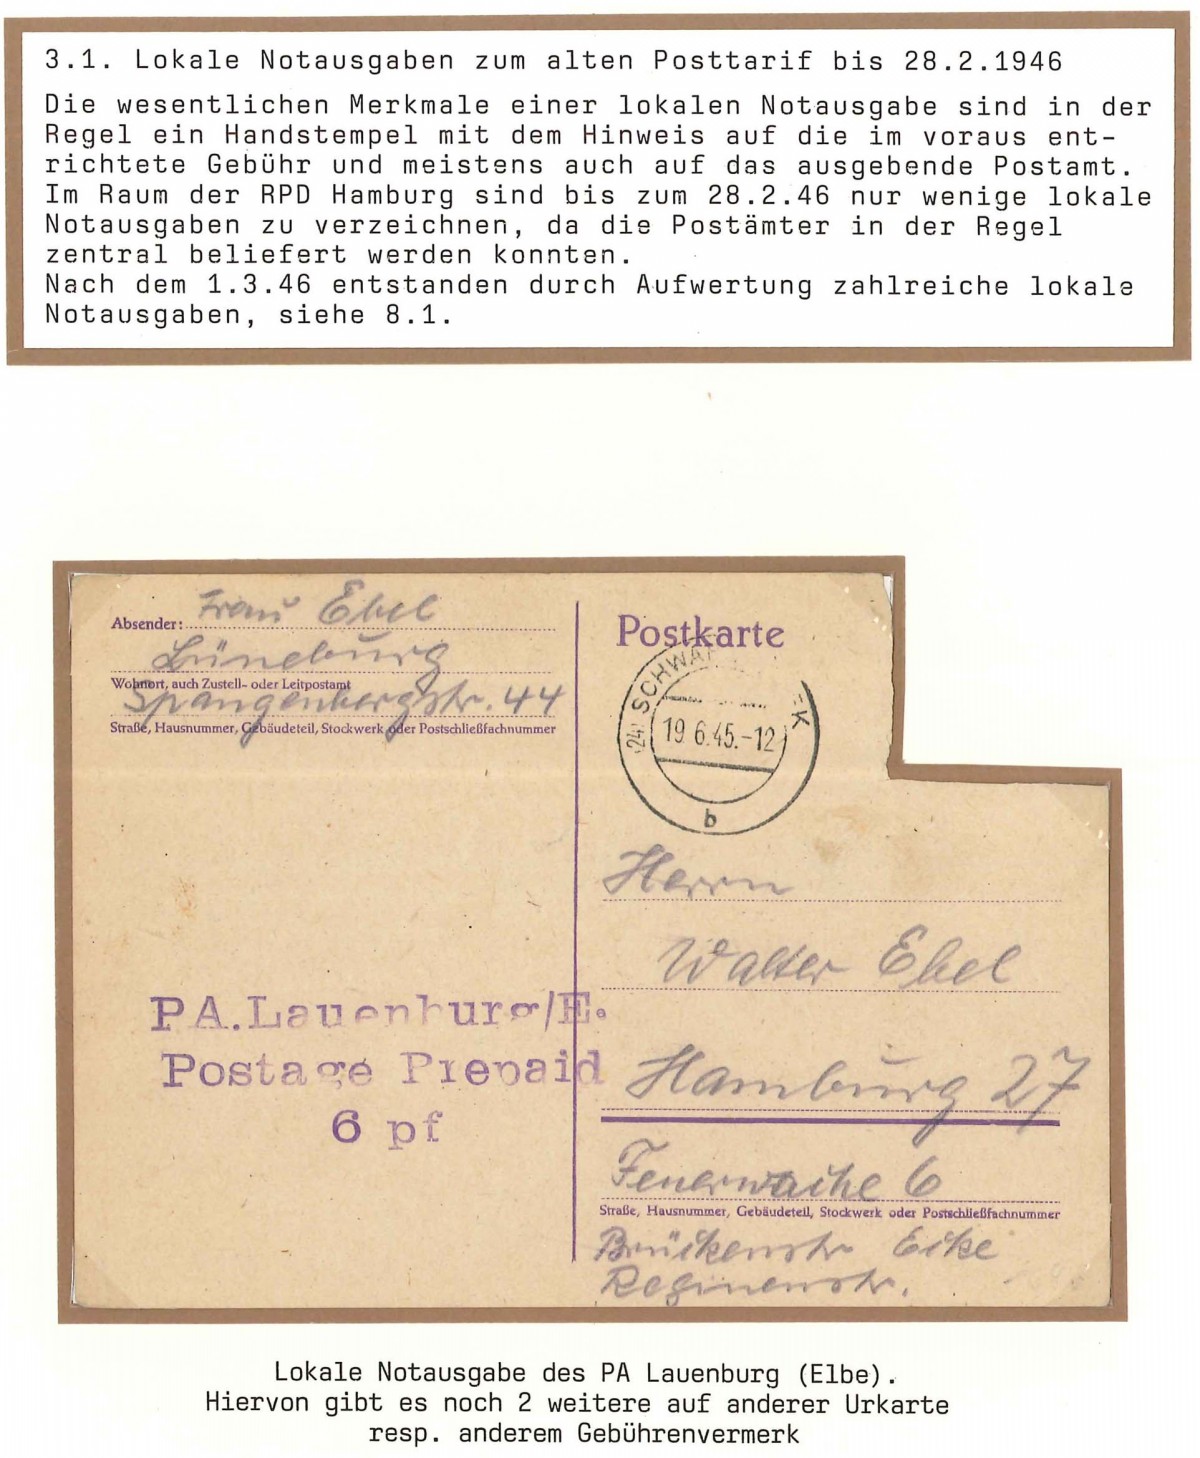 3.1. Lokale Notausgaben zum alten Posttarif bis 28.2.1946
Die wesentlichen Merkmale einer lokalen Notausgabe sind in der
Regel ein Handstempel mit dem Hinweis auf die im voraus ent-
richtete Gebühr und meistens auch auf das ausgebende Postamt.
Im Raum der RPD Hamburg sind bis zum 28.2.46 nur wenige lokale
Notausgaben zu verzeichnen, da die Postämter in der Regel
zentral beliefert werden konnten.
Nach dem 1.3.46 entstanden durch Aufwertung zahlreiche lokale
Notausgaben, siehe 8.1.
Absender: Frau Ebel
Lüneburg
Wohnort, auch Zustell- oder Leitpostamt
Spangenbergstr. 44
Straße, Hausnummer, Gebäudeteil, Stockwerk oder Postschließfachnummer
PA.Lauenburg/E.
Postage Prepaid
6 pf
Postkarte
(24)
19 6.45.-12
b
Herrn
Walter Ebel
Hamburg 27
Feuerwache 6
Straße, Hausnummer, Gebäudeteil, Stockwerk oder Postschließfachnummer
Brückenstr Ecke
Reginenstr.
Lokale Notausgabe des PA Lauenburg (Elbe).
Hiervon gibt es noch 2 weitere auf anderer Urkarte
resp. anderem Gebührenvermerk